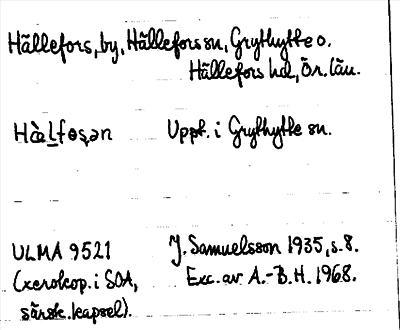 Hällefors, by, Hällefors sn, Grythytte o.
Hällefors hd, Ör. län.
Hæ̀l̲fɵs̩ən Uppt. i Grythytte sn.
ULMA 9521 J. Samuelsson 1935, s. 8.
(xerokop. i SOA, Exc. av A.-B. H. 1968.
särsk. kapsel).